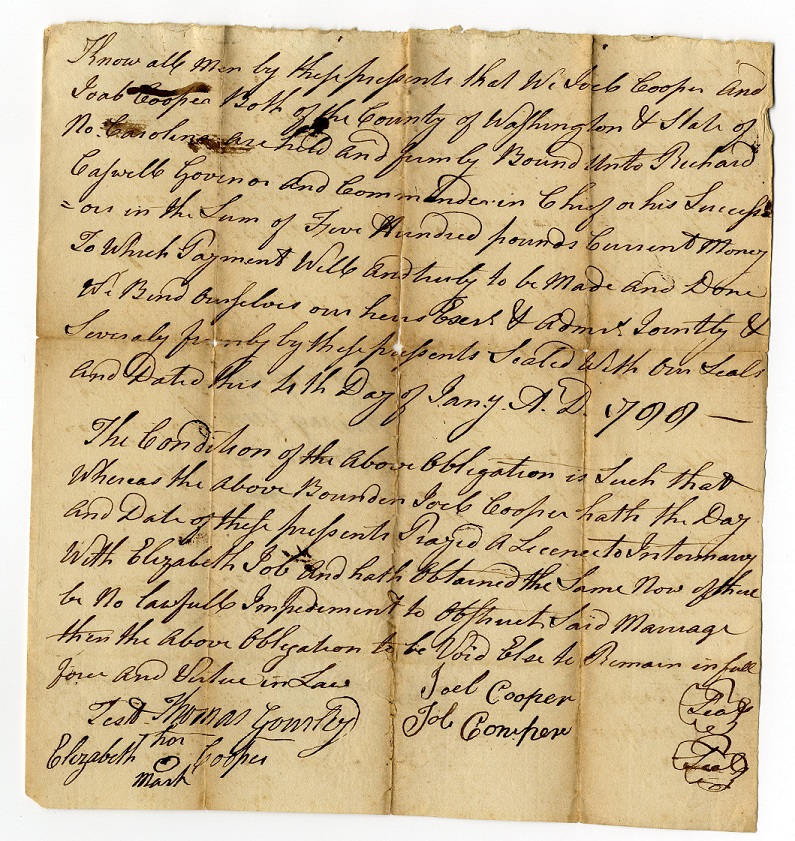 Know all Men by these presents that We Joel Cooper and
Joab Cooper Both of the County of Washington & State of
No. Carolina are held and firmly Bound Unto Richard
Caswell Govenor and Commander in Chief or his Success
=ors in the Sum of Five Hundred pounds Current Money
To Which Payment Well and truly to be Made and Done
We Bind Ourselves our heirs Exers. & admrs. Jointly &
Severaly firmly by these presents Sealed With Our Seals
and Dated this 4th Day of Jany. A.D. 1788 —
The Condition of the Above Obligation is Such that
Whereas the above Bounden Joel Cooper hath the Day
and Date of these presents Prayed A Licence to Intermarry
With Elizabeth Job And hath Obtained the Same Now if there
be No lawfull Impediment to Obstruct Said Marriage
then the Above Obligation to be Void Else to Remain in full
force and Virtue in Law
Joel Cooper Seal
Test Thomas Gourley
Job Comper Seal
Elizabeth hor Cooper
mark